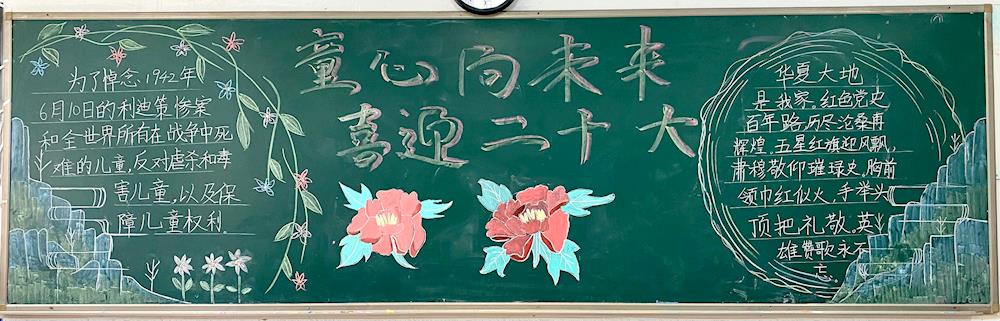 童心向未来
喜迎二十大
为了悼念1942年
6月10日的利迪策惨案
和全世界所有在战争中死
难的儿童,反对虐杀和毒
害儿童,以及保
障儿童权利.
华夏大地
是我家,红色党史
百年路,历尽沧桑再
辉煌.五星红旗迎风飘,
肃穆敬仰璀璨史,胸前
领巾红似火,手举头
顶把礼敬,英
雄赞歌永不
忘.